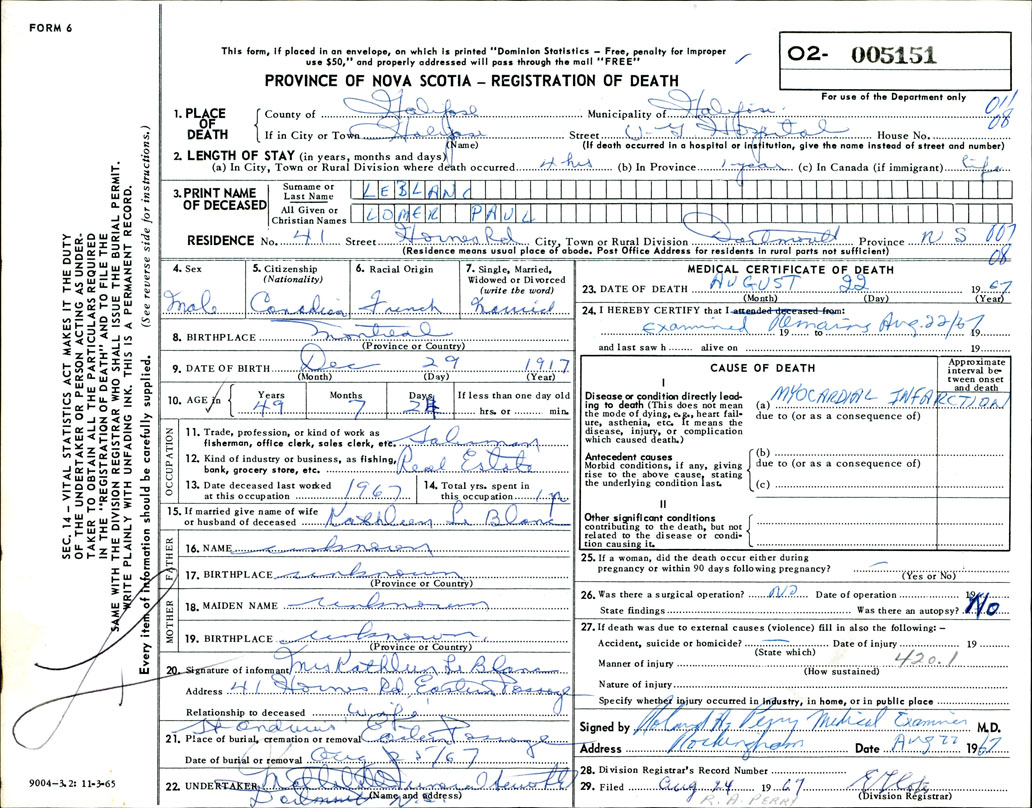 FORM 6
This form, if placed in an envelope, on which is printed "Dominion Statistics – Free, penalty for improper
use $50," and properly addressed will pass through the mail "FREE"
PROVINCE OF NOVA SCOTIA – REGISTRATION OF DEATH
02- 005151
For use of the Department only
011
08
1. PLACE OF DEATH
County of Halifax Municipality of Halifax
If in City or Town Halifax Street V-G Hospital House No.
(Name) (If death occurred in a hospital or institution, give the name instead of street and number)
2. LENGTH OF STAY (in years, months and days)
(a) In City, Town or Rural Division where death occurred 4 hrs (b) In Province 1 year (c) In Canada (if immigrant) life
3. PRINT NAME OF DECEASED
Surname or Last Name LEBLANC
All Given or Christian Names LOMER PAUL
RESIDENCE No. 41 Street Hornes Rd City, Town or Rural Division Dartmouth Province N S 007
08
(Residence means usual place of abode. Post Office Address for residents in rural parts not sufficient)
4. Sex
Male
5. Citizenship (Nationality)
Canadian
6. Racial Origin
French
7. Single, Married, Widowed or Divorced (write the word)
Married
8. BIRTHPLACE Montreal
(Province or Country)
9. DATE OF BIRTH Dec 29 1917
(Month) (Day) (Year)
10. AGE in Years Months Days If less than one day old
49 7 24 hrs. or min.
OCCUPATION
11. Trade, profession, or kind of work as fisherman, office clerk, sales clerk, etc. Salesman
12. Kind of industry or business, as fishing, bank, grocery store, etc. Real Estate
13. Date deceased last worked at this occupation 1967
14. Total yrs. spent in this occupation 1 yr
15. If married give name of wife or husband of deceased Kathleen Le Blanc
FATHER
16. NAME unknown
17. BIRTHPLACE unknown
(Province or Country)
MOTHER
18. MAIDEN NAME unknown
19. BIRTHPLACE unknown
(Province or Country)
20. Signature of informant Mrs Kathleen Le Blanc
Address 41 Hornes Rd, Eastern Passage
Relationship to deceased Wife
St Andrews
21. Place of burial, cremation or removal Eastern Passage
Date of burial or removal Aug 25/67
22. UNDERTAKER Funeral
(Name and address)
9004–3.2: 11-3-65
MEDICAL CERTIFICATE OF DEATH
23. DATE OF DEATH AUGUST 22 1967
(Month) (Day) (Year)
24. I HEREBY CERTIFY that I attended deceased from:
Examined Remains Aug. 22/67
19 to 19
and last saw h alive on 19
CAUSE OF DEATH
Approximate interval between onset and death
I
Disease or condition directly leading to death (This does not mean the mode of dying, e.g., heart failure, asthenia, etc. It means the disease, injury, or complication which caused death.)
(a) MYOCARDIAL INFARCTION
due to (or as a consequence of)
Antecedent causes
Morbid conditions, if any, giving rise to the above cause, stating the underlying condition last.
(b)
due to (or as a consequence of)
(c)
II
Other significant conditions
contributing to the death, but not related to the disease or condition causing it.
25. If a woman, did the death occur either during pregnancy or within 90 days following pregnancy? –
(Yes or No)
26. Was there a surgical operation? NO Date of operation 19
State findings Was there an autopsy? No
27. If death was due to external causes (violence) fill in also the following: –
Accident, suicide or homicide? – Date of injury 19
(State which)
Manner of injury 420.1
(How sustained)
Nature of injury
Specify whether injury occurred in industry, in home, or in public place
Signed by Roland A. Perry Medical Examiner M.D.
Address Rockingham Date Aug 22 1967
28. Division Registrar's Record Number
29. Filed Aug 24 1967
(Division Registrar)
R. A. PERRY
SEC. 14 – VITAL STATISTICS ACT MAKES IT THE DUTY
OF THE UNDERTAKER OR PERSON ACTING AS UNDER-
TAKER TO OBTAIN ALL THE PARTICULARS REQUIRED
IN THE "REGISTRATION OF DEATH" AND TO FILE THE
SAME WITH THE DIVISION REGISTRAR WHO SHALL ISSUE THE BURIAL PERMIT.
WRITE PLAINLY WITH UNFADING INK. THIS IS A PERMANENT RECORD.
Every item of information should be carefully supplied. (See reverse side for instructions.)